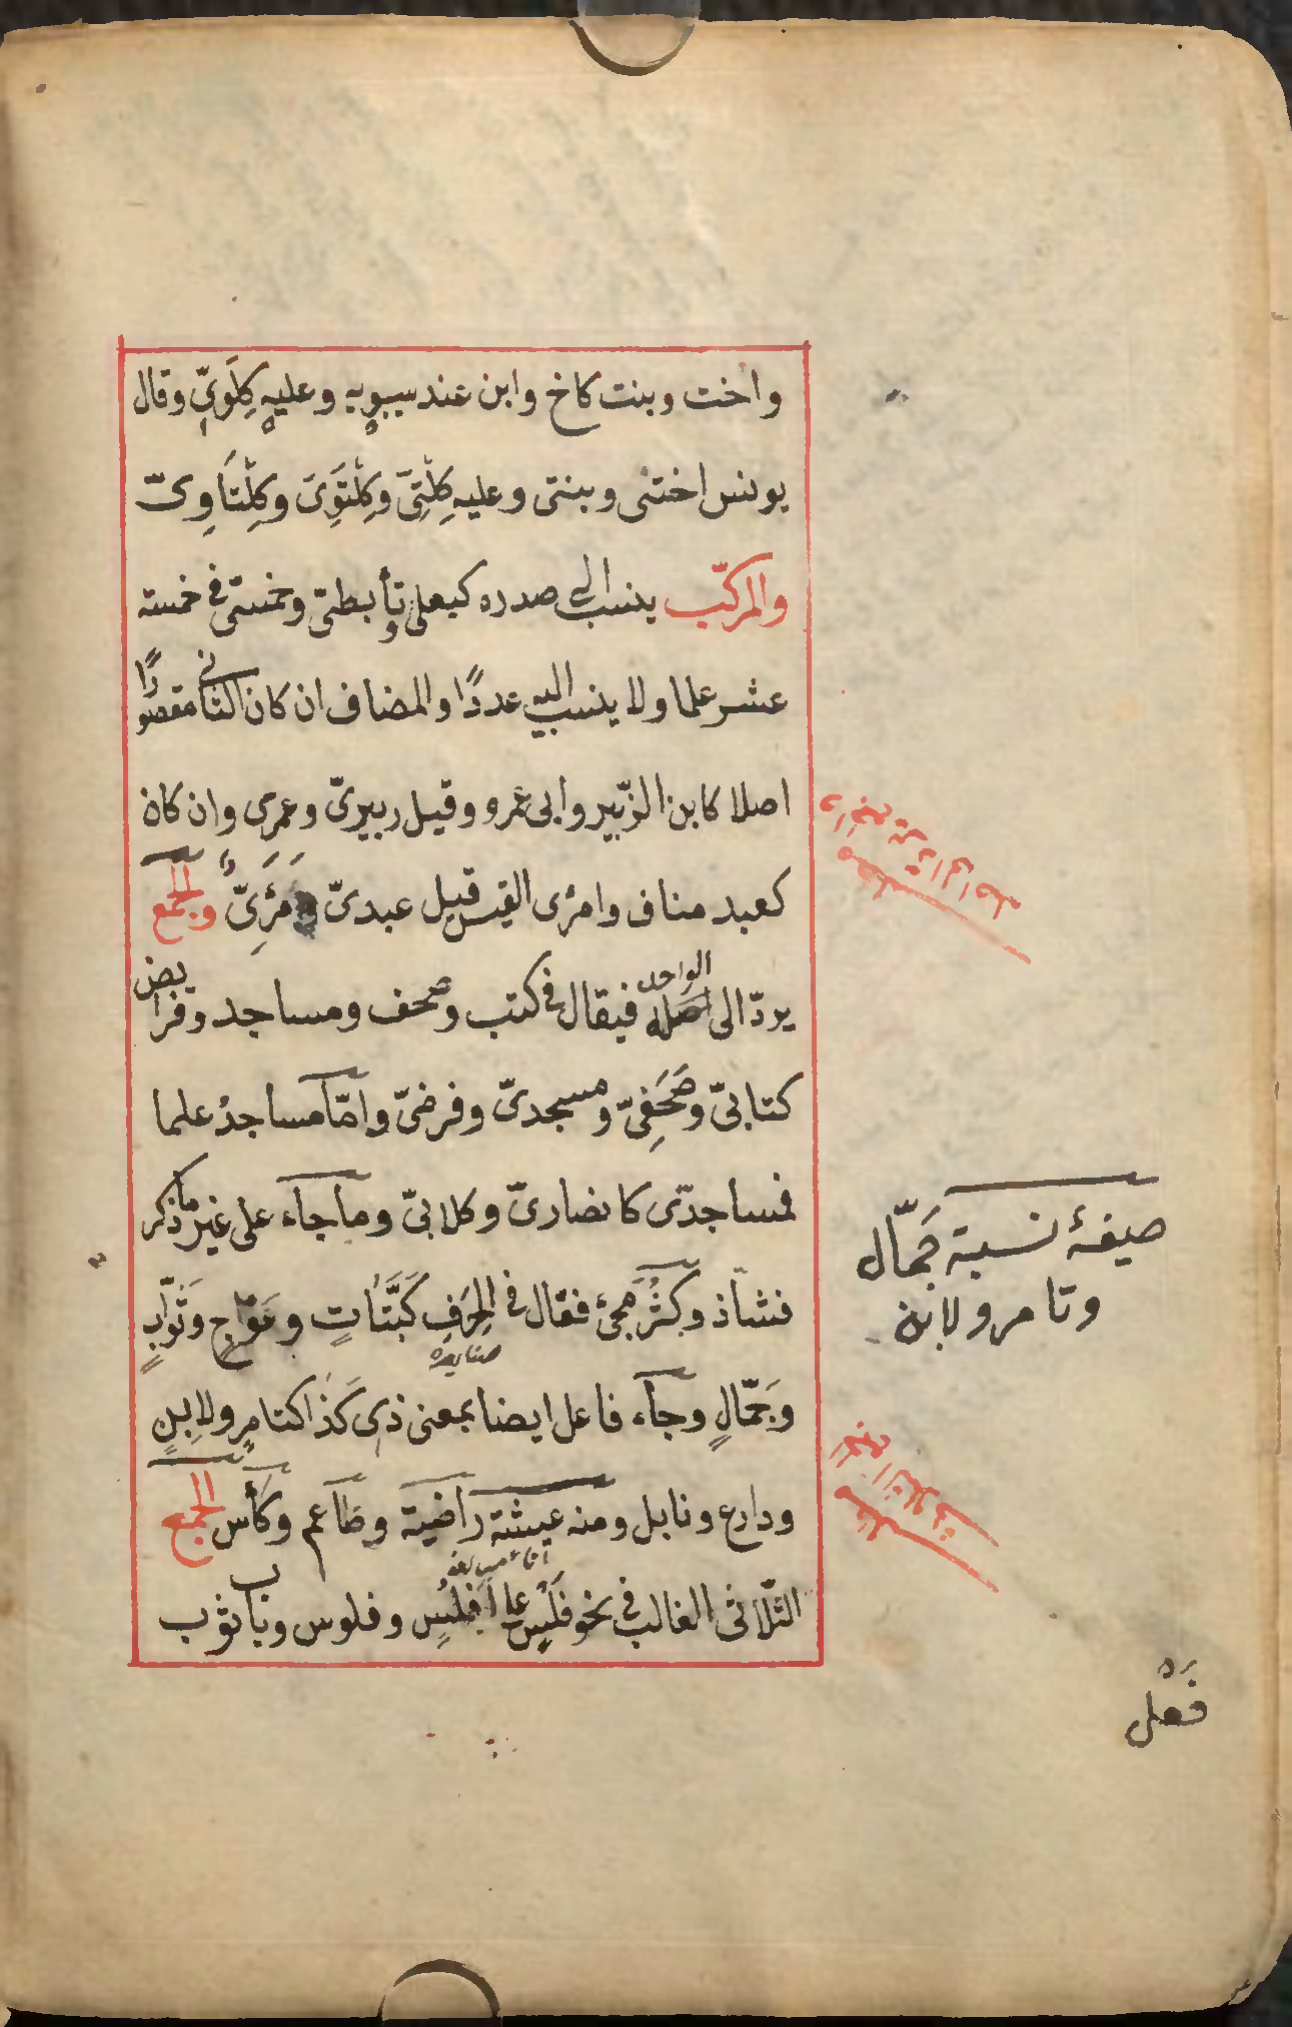 واخت وبنت كاخ وابن عند سيبويه وعليه كِلَوِىّ وقال
يونس اختى وبنتى وعليه كِلْتِىّ وكِلْتَوِىّ وكِلْتَاوِىّ
والمركّب ينسب الى صدره كبعلى وتأبطىّ وخمسىّ فى خمسة
عشر علما ولا ينسب اليه عددًا والمضاف ان كان الثانى مقصودًا
اصلا كابن الزّبير وابى عمرو وقيل زبيرىّ وعمرى وان كان
كعبد مناف وامرئ القيس قيل عبدىّ و مَرَئِىّ والجمع
يردّ الى اصله الواحد فيقال فى كتب وصحف ومساجد وفرايض
كتابىّ وصَحَفِىّ ومسجدىّ وفرضىّ وامّا مساجدُ علما
فمساجدىّ كانصارىّ وكلابىّ وما جاء على غير ما ذكر
فشاذ وكَثُرَ مجئ فعّال فى الحِرَفِ كَبَتَّاتٍ وعَوّاجٍ وثَوّابٍ
صنايع
وجَمّالٍ وجاء فاعل ايضا بمعنى ذى كَذَا كتامرٍ ولابنٍ
ودارع ونابل ومنه عيشة راضية وطاعم وكأس الجمع
الثّلاثى الغالب فى نحو فَلْسٍ على اَفْلُسٍ وفلوس وباب ثوب
صيغهٔ نسبة جَمّال
وتامر ولابن
فَعْل